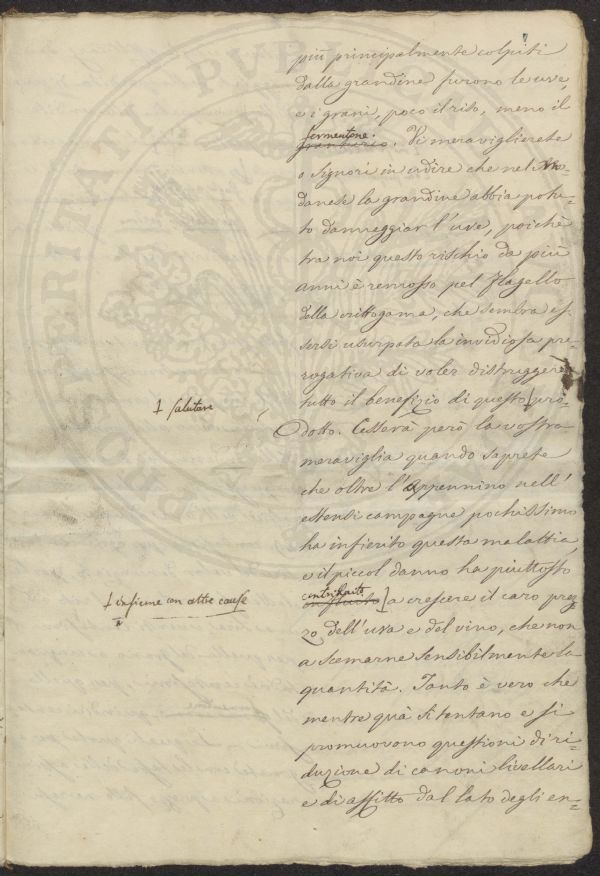 più principalmente colpiti
dalla grandine furono le uve,
e i grani, poco il riso, meno il
fermentone.
granturco. Vi meraviglierete
o Signori in udire che nel Mo=
danese la grandine abbia potu=
to danneggiar l'uve, poichè
tra noi questo rischio da più
anni è remosso pel flagello
della crittogama, che sembra es=
sersi usurpata la invidiosa pre=
rogativa di voler distruggere
tutto il benefizio di questo [pro=
+ salutare
dotto. Cesserà però la vostra
meraviglia quando saprete
che oltre l'Appennino nell'
estensi campagne pochissimo
ha infierito questa malattia,
e il piccol danno ha piuttosto
contribuito
influito ] a crescere il caro prez=
+ insieme con altre cause
zo dell'uva e del vino, che non
a scemarne sensibilmente la
quantità. Tanto è vero che
mentre quà si tentano e si
promuovono questioni di ri=
duzione di canoni livellari
e di affitto dal lato degli en=